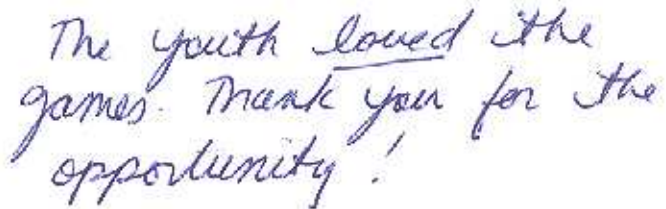 The youth loved the
games. Thank you for the
opportunity!